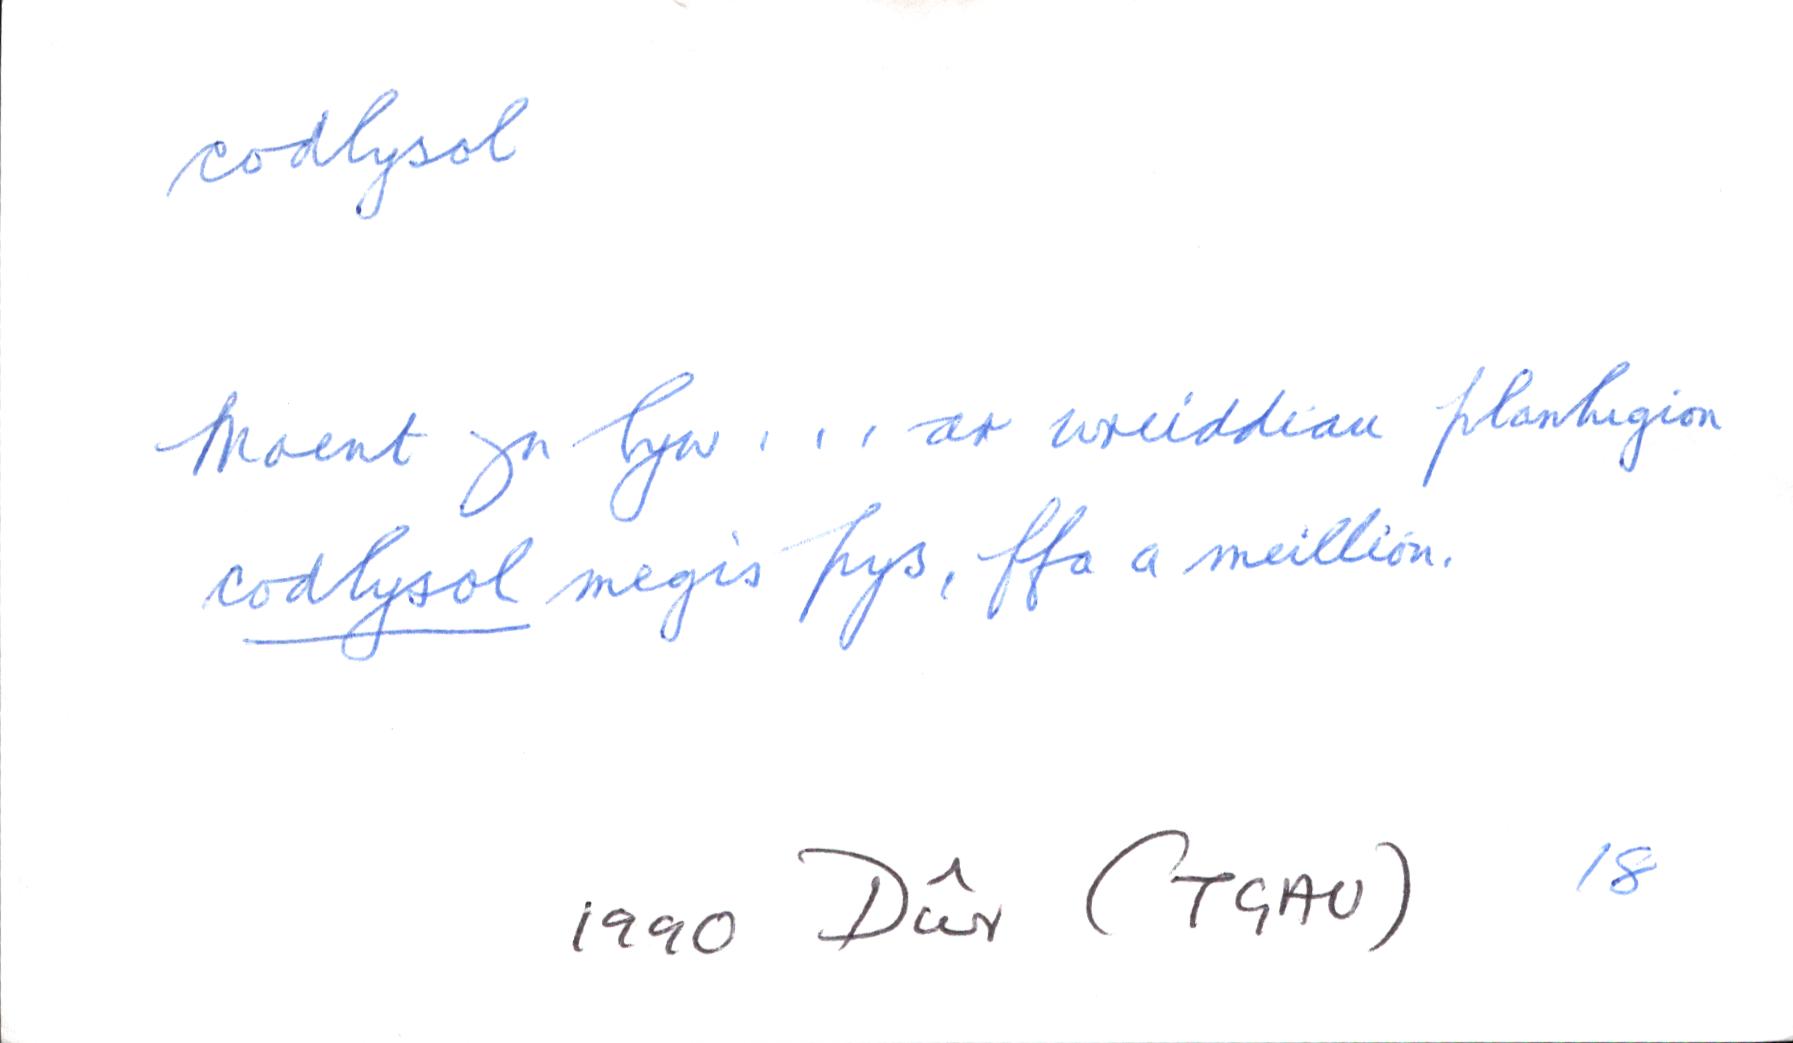 codlysol
Maent yn byw . . . ar wreiddiau planhigion
codlysol megis pys, ffa a meillion.
1990 Dŵr (TGAU) 18